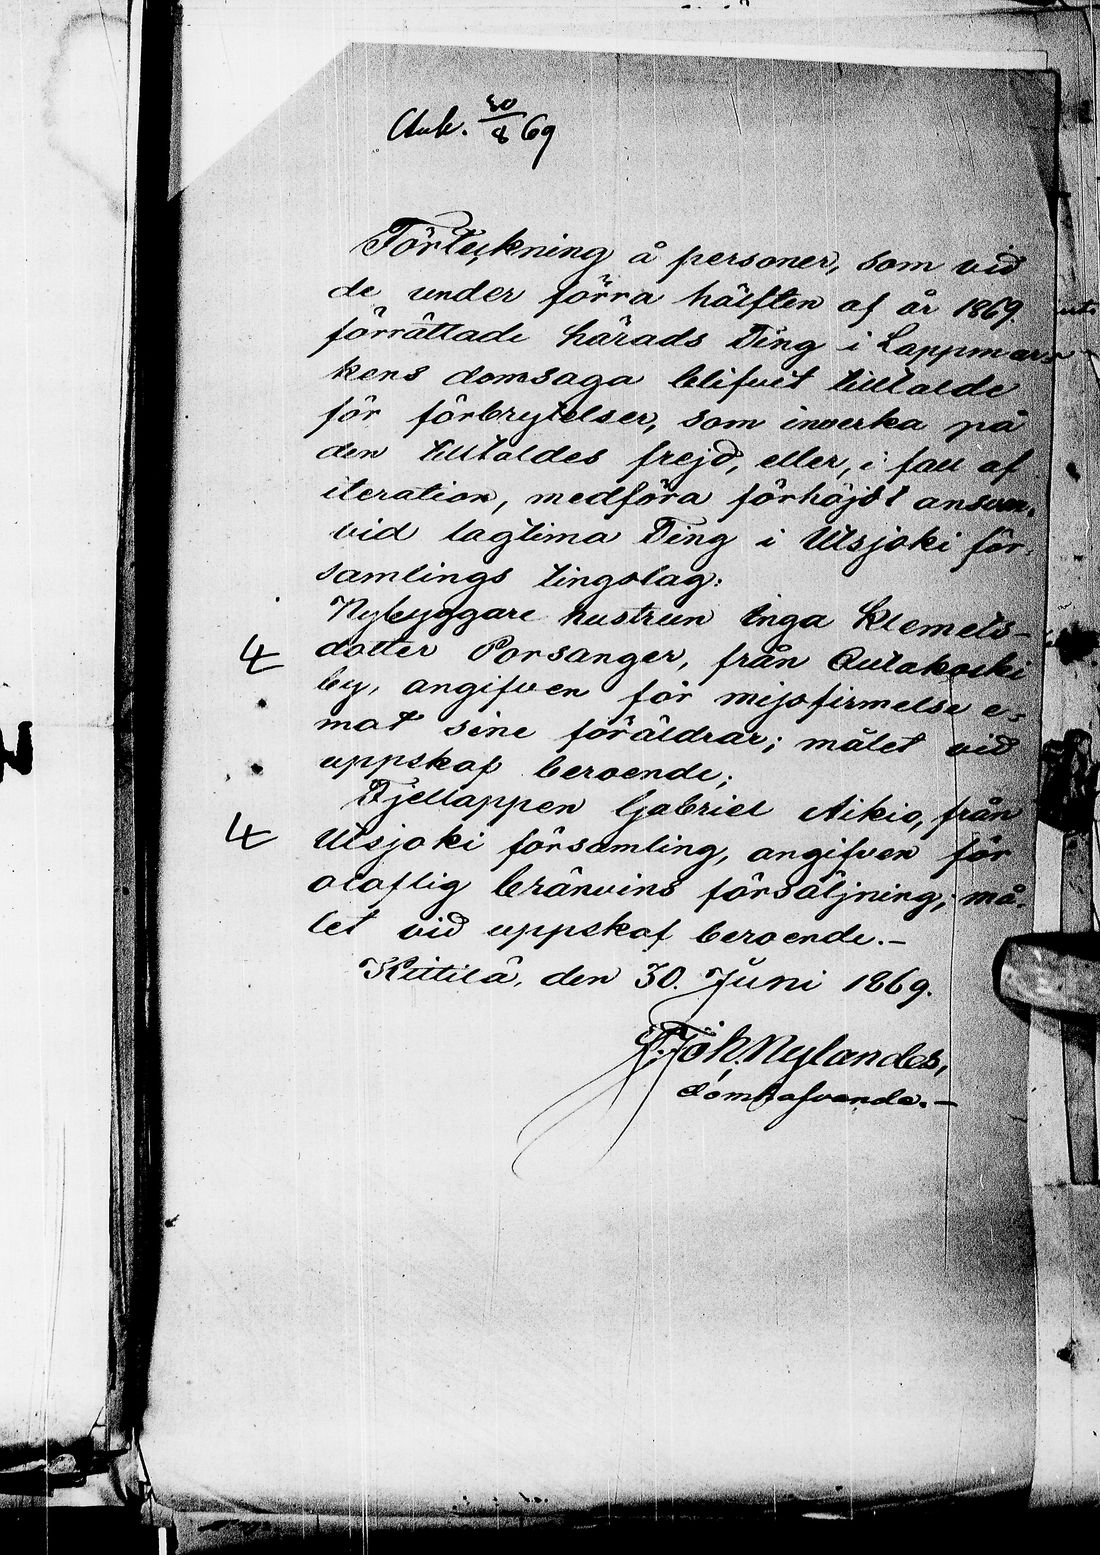 Ank. 30/8 69
Förteckning å personer, som vid
de under förra hälften af år 1869
förrättade härads Ting i Lappmar-
kens domsaga blifvit tilltalde
för förbrytelser, som inverka på
den tilltaldes frejd, eller, i fall af
iteration, medföra förhöjdt ansvar,
vid lagtima Ting i Utsjoki för-
samlings tingslag:
Nybyggare hustrun Inga Klemets-
4 dotter Porsanger, från Outakoski
by, angifven för missfirmelse e-
mot sine föräldrar; målet vid
uppskof beroende;
Fjellappen Gabriel Aikio, från
4 Utsjoki församling, angifven för
olaflig bränvins försäljning; må-
let vid uppskof beroende.-
Kittilä, den 30. Juni 1869.
Joh. Nylander,
domhafvande.-